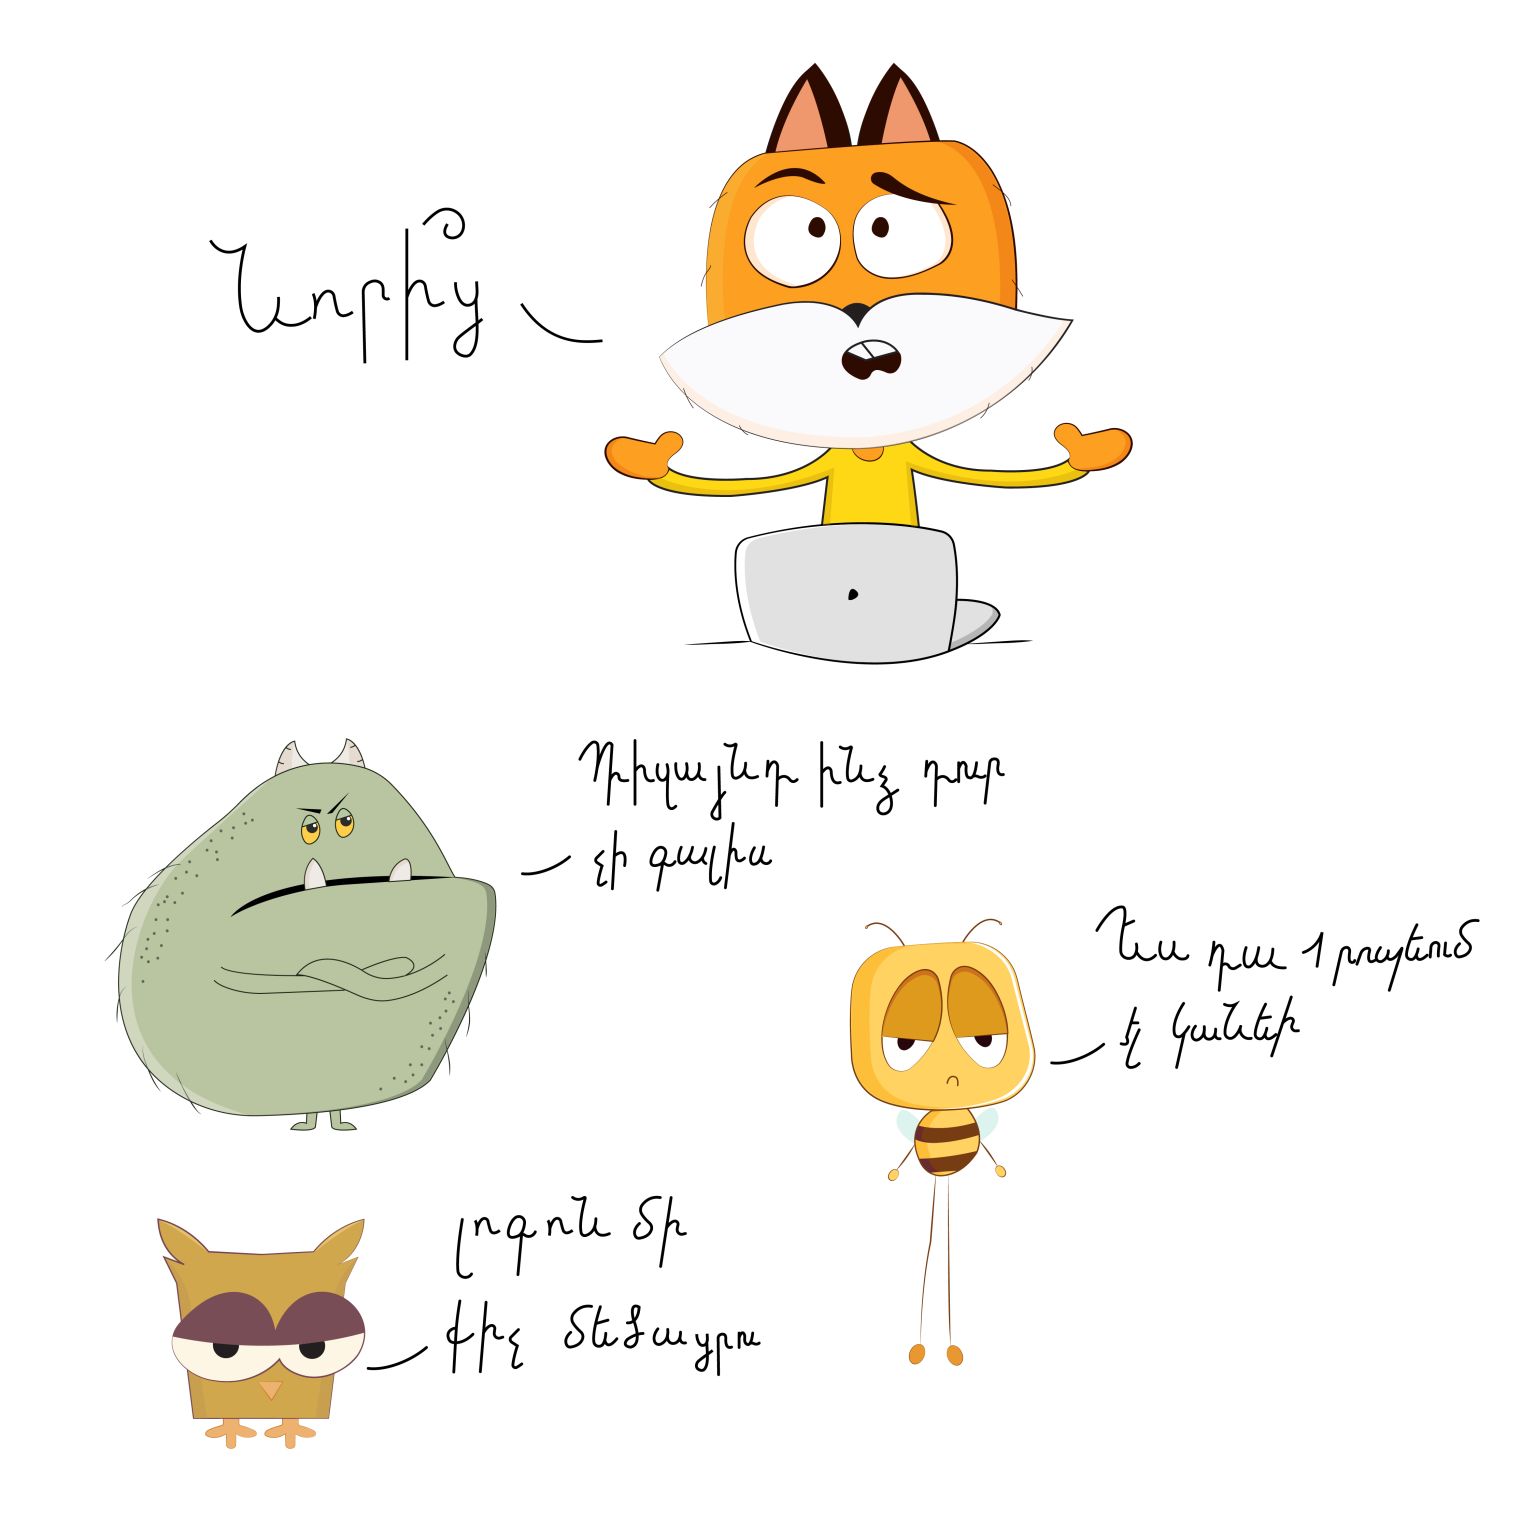 Նորի՞ց
Դիզայներ ինչ դուր
չի գալիս
Ես դա 1 րոպեում
էլ կանեի
լոգոն մի
քիչ մեծացրու